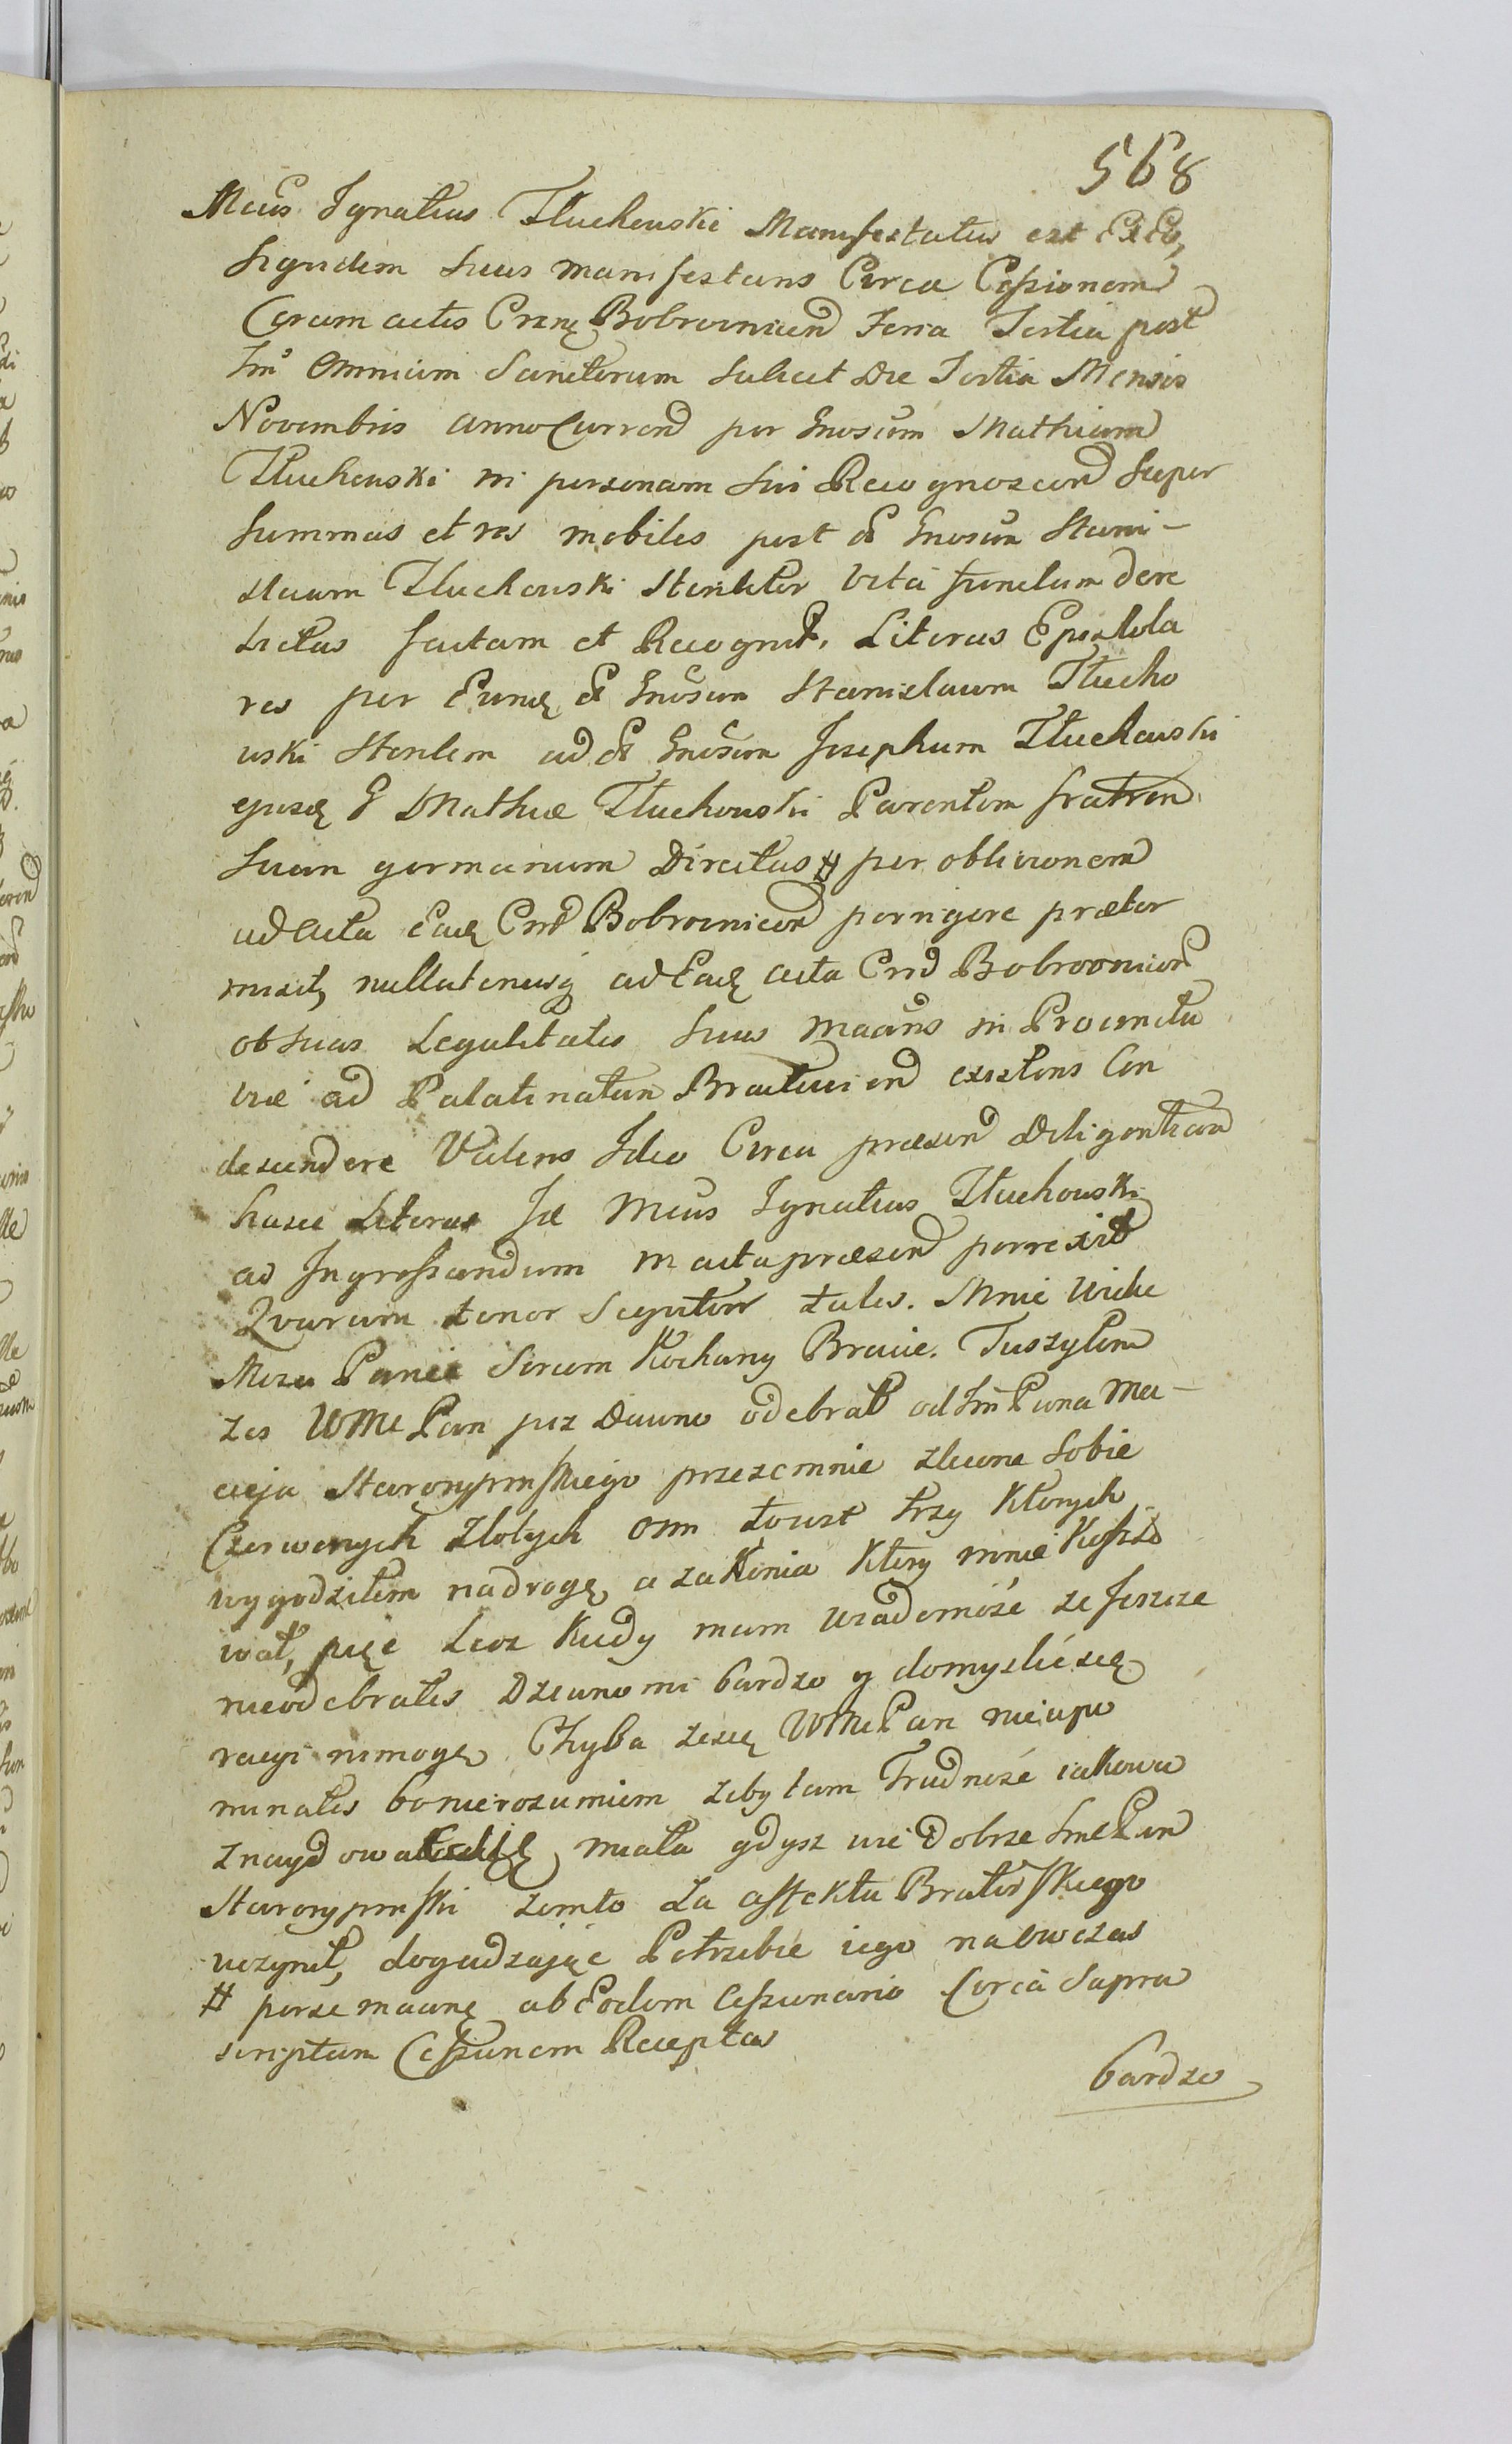 568
Mcus Ignatius Tłuchowski Manifestatus est Ex Eo,
Siquidem Suus manifestans Circa Cessionem
Coram actis Bobrovnicen Feria Tertia post
Omnium Sanctorum Scilicet Die Tertia Mensis
Novembris anno Curren per Gnosum Mathiam
Tłuchowski in personam Sui Recognoscen Super
Summas et res mobiles post Gnosum Stani-
slaum Tłuchowski Steriliter Vita functum dere
lictas factam et Recognit. Literas Epistola
res per Gnosum Stanislaum Tłucho
wski Sterilem ad Gnosum Josephum Tłuchowski
G Mathiæ Tłuchowski Parentem fratrem
Suum germanum Directas # per oblivionem
ad acta Bobrovnicen porrigere præter
misit, nullatenusq ad acta Bobrovnicen
ob suas Legalitates Suus in Procinctu
viæ ad Palatinatum existens Con
descendere Valens Ideo Circa præsen Diligentiam
hasce Literas Mcus Ignatius Tłuchowski
ad Ingrossandum in acta præsen porrexit
Quarum tenor Sequitur talis. Mnie Wielce
Mosci Panie Sercem Kochany Bracie. Tuszyłem
zes WMc Pan już Dawno odebrał od Jm Pana Ma-
cieja Starorypinskiego przezemnie zlecone Sobie
Czerwonych Złotych osm toiest trzy Ktorych
wygodziłem na drogę, a za Konia Ktory mnie Kosszto
wał, pięc Lecz Kiedy mam wiadomośc ze Jeszcze
nieodebrałes Dziwno mi bardzo y domyslic się
raczi nimogę. Chyba zesię WMc Pan nieupo
minałes bo nierozumiem zeby tam Trudnosc iakowa
znaydowac się miała gdysz wie Dobrze Jmc Pan
Starorypinski zemto Za affektu Braterskiego
uczynił, dogadzając Potrzebie iego naowczas
# ab Eodem Cessionario Circa Supra
scriptam Cessionem Receptas
bardzo